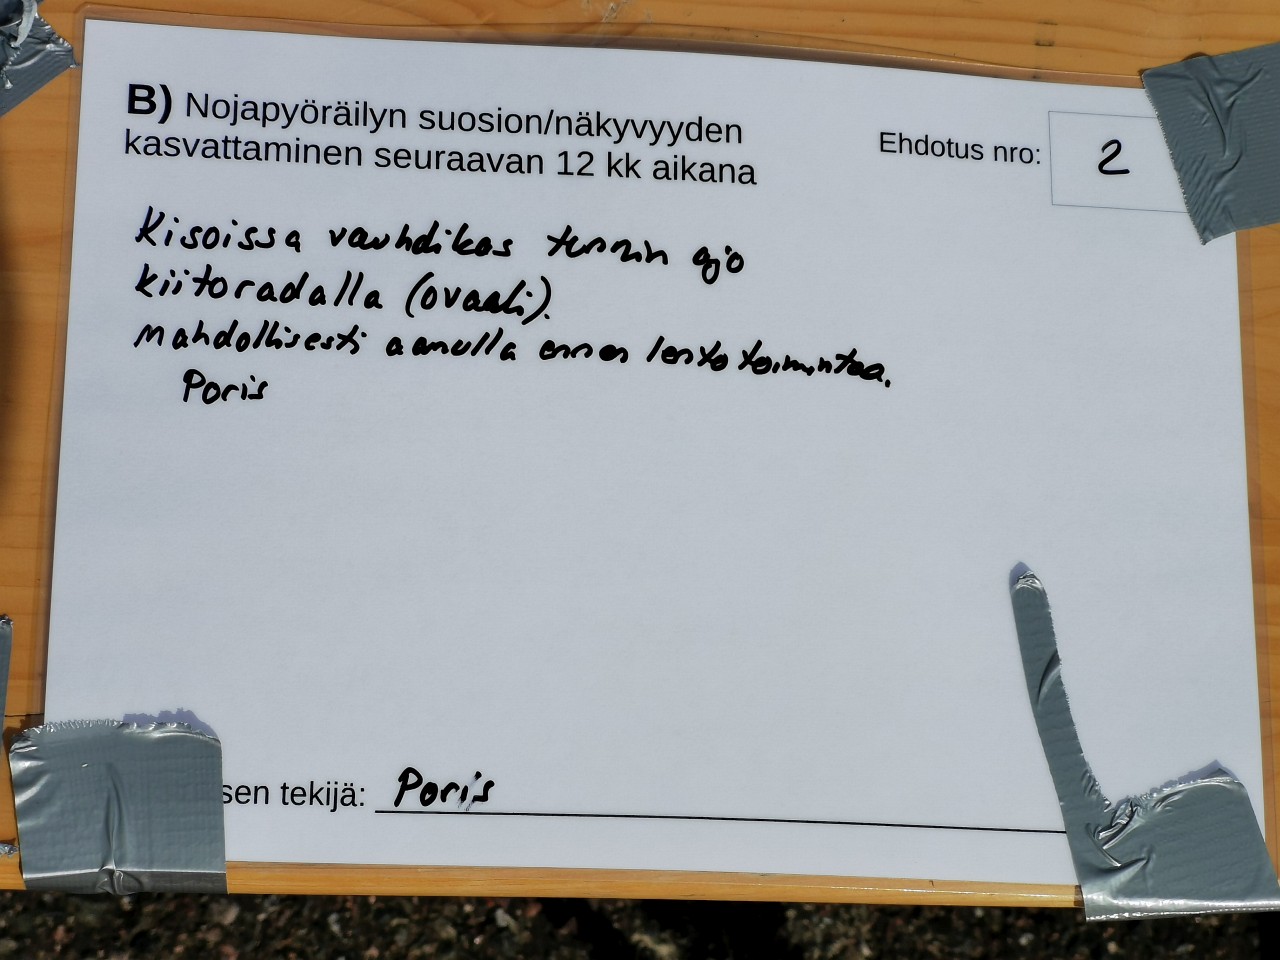 B) Nojapyöräilyn suosion/näkyvyyden
kasvattaminen seuraavan 12 kk aikana
Ehdotus nro: 2
Kisoissa vauhdikas tunnin ajo
kiitoradalla (ovaali).
Mahdollisesti aamulla ennen lentotoimintaa.
Poris
sen tekijä: Poris